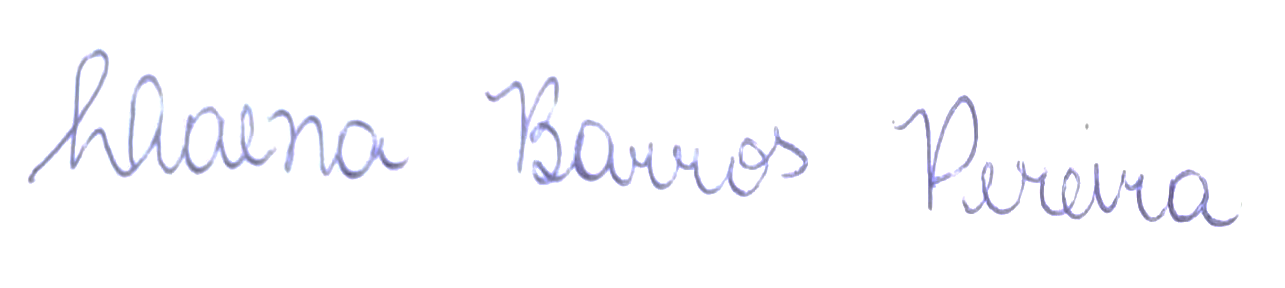 Lhaena Barros Pereira